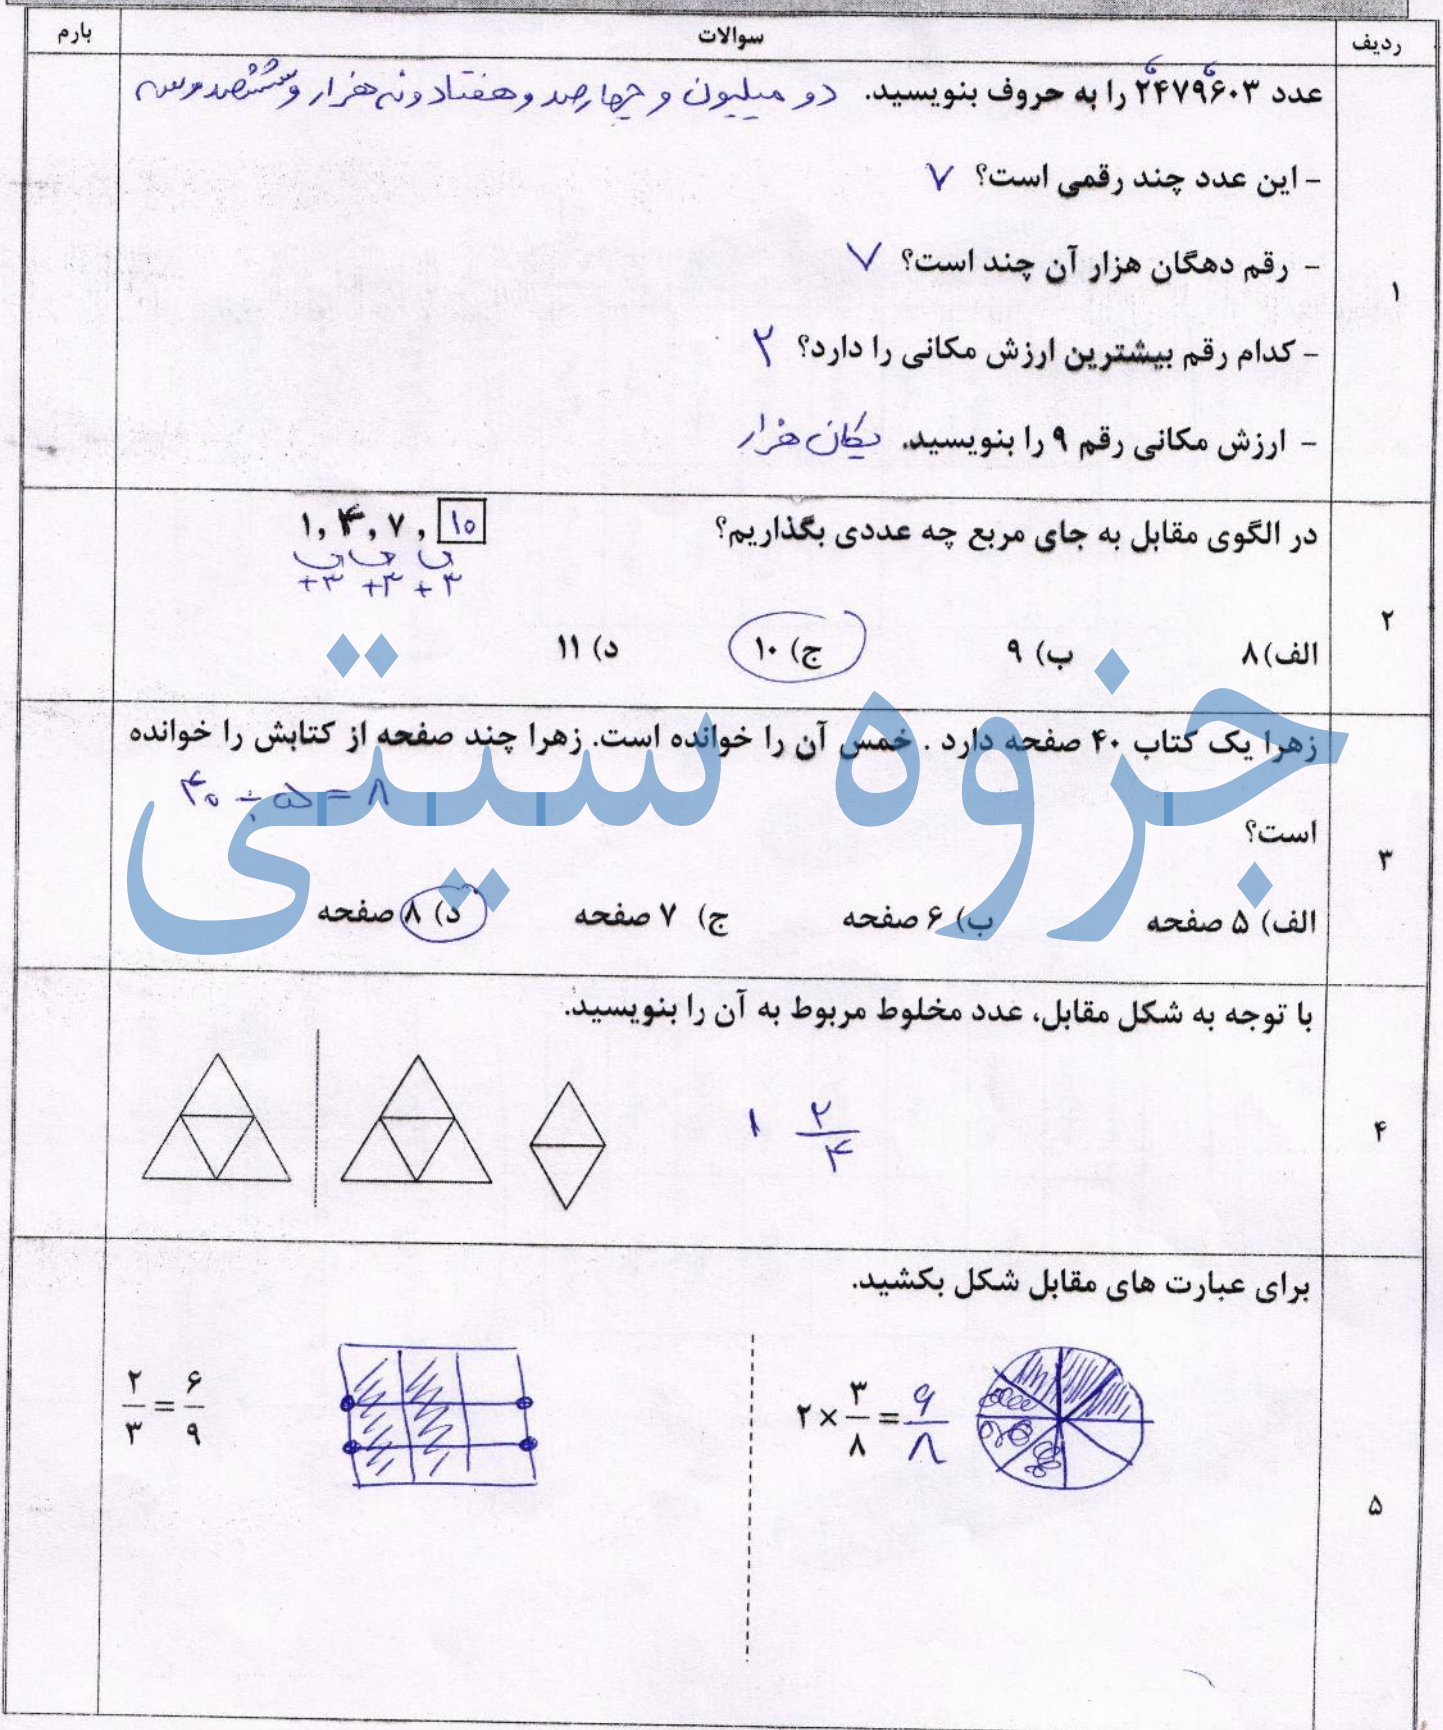 ردیف سوالات بارم
عدد ۲۴۷۹۶۰۳ را به حروف بنویسید. دو میلیون و چهارصد و هفتاد و نه هزار و ششصد و سه
- این عدد چند رقمی است؟ ۷
- رقم دهگان هزار آن چند است؟ ۷
۱
- کدام رقم بیشترین ارزش مکانی را دارد؟ ۲
- ارزش مکانی رقم ۹ را بنویسید. یکان هزار
در الگوی مقابل به جای مربع چه عددی بگذاریم؟ ۱, ۴, ۷, ۱۰
+۳ +۳ +۳
۲
الف) ۸ ب) ۹ ج) ۱۰ د) ۱۱
جزوه سیتی
زهرا یک کتاب ۴۰ صفحه دارد . خمس آن را خوانده است. زهرا چند صفحه از کتابش را خوانده
۴۰ ÷ ۵ = ۸
است؟
۳
الف) ۵ صفحه ب) ۶ صفحه ج) ۷ صفحه د) ۸ صفحه
با توجه به شکل مقابل، عدد مخلوط مربوط به آن را بنویسید.
۴
۱ ۲/۴
برای عبارت های مقابل شکل بکشید.
۲/۳ = ۶/۹
۲ × ۳/۸ = ۶/۸
۵